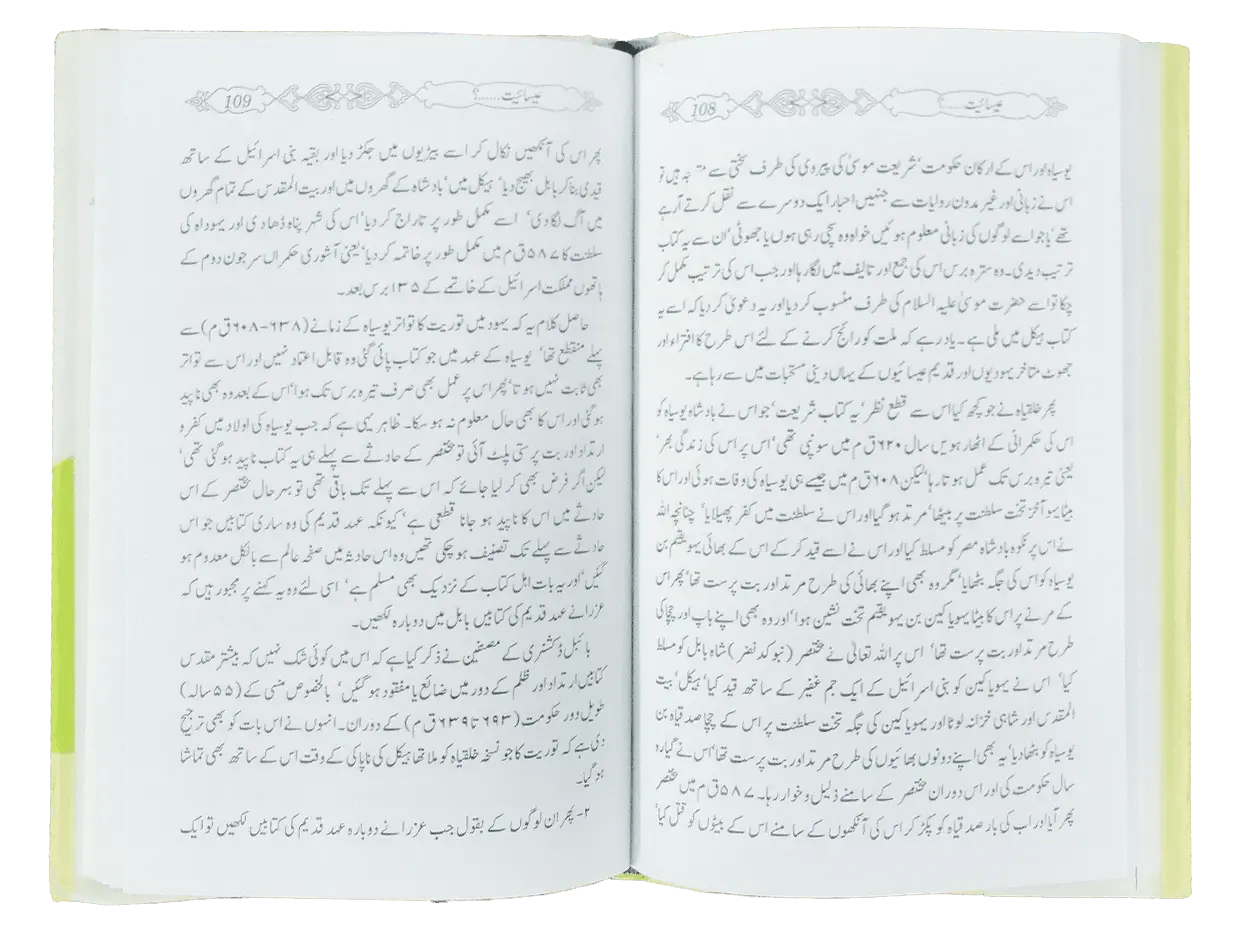 عیسائیت......؟ 108
یوسیاہ اور اس کے ارکان حکومت‘ شریعت موسیٰ کی پیروی کی طرف سختی سے متوجہ ہیں تو
اس نے زبانی اور غیر مدون روایات سے جنہیں احبار ایک دوسرے سے نقل کرتے آ رہے
تھے‘ یا جو اسے لوگوں کی زبانی معلوم ہوئیں خواہ وہ سچی رہی ہوں یا جھوٹی‘ ان سے یہ کتاب
ترتیب دیدی۔ وہ سترہ برس اس کی جمع اور تالیف میں لگا رہا اور جب اس کی ترتیب مکمل کر
چکا تو اسے حضرت موسیٰ علیہ السلام کی طرف منسوب کر دیا اور یہ دعویٰ کر دیا کہ اسے یہ
کتاب ہیکل میں ملی ہے۔ یاد رہے کہ ملت کو رائج کرنے کے لئے اس طرح کا افتراء اور
جھوٹ متاخر یہودیوں اور قدیم عیسائیوں کے یہاں دینی مستحبات میں سے رہا ہے۔
پھر خلقیاہ نے جو کچھ کیا اس سے قطع نظر‘ یہ کتاب شریعت‘ جو اس نے بادشاہ یوسیاہ کو
اس کی حکمرانی کے اٹھارہویں سال ۶۲۰ ق م میں سونپی تھی‘ اس پر اس کی زندگی بھر‘
یعنی تیرہ برس تک عمل ہوتا رہا‘ لیکن ۶۰۸ ق م میں جیسے ہی یوسیاہ کی وفات ہوئی اور اس کا
بیٹا یہو آخز تخت سلطنت پر بیٹھا‘ مرتد ہو گیا اور اس نے سلطنت میں کفر پھیلایا‘ چنانچہ اللہ
نے اس پر نکوہ بادشاہ مصر کو مسلط کیا اور اس نے اسے قید کر کے اس کے بھائی یہویقیم بن
یوسیاہ کو اس کی جگہ بٹھایا‘ مگر وہ بھی اپنے بھائی کی طرح مرتد اور بت پرست تھا‘ پھر اس
کے مرنے پر اس کا بیٹا یہویاکین بن یہویقیم تخت نشین ہوا‘ اور وہ بھی اپنے باپ اور چچا کی
طرح مرتد اور بت پرست تھا‘ اس پر اللہ تعالیٰ نے مختصر (نبوکدنضر) شاہ بابل کو مسلط
کیا‘ اس نے یہویاکین کو بنی اسرائیل کے ایک جم غفیر کے ساتھ قید کیا‘ ہیکل‘ بیت
المقدس اور شاہی خزانہ لوٹا اور یہویاکین کی جگہ تخت سلطنت پر اس کے چچا صدقیاہ بن
یوسیاہ کو بٹھا دیا‘ یہ بھی اپنے دونوں بھائیوں کی طرح مرتد اور بت پرست تھا‘ اس نے گیارہ
سال حکومت کی اور اس دوران مختصر کے سامنے ذلیل و خوار رہا۔ ۵۸۷ ق م میں مختصر
پھر آیا اور اب کی بار صدقیاہ کو پکڑ کر اس کی آنکھوں کے سامنے اس کے بیٹوں کو قتل کیا‘
عیسائیت......؟ 109
پھر اس کی آنکھیں نکال کر اسے بیڑیوں میں جکڑ دیا اور بقیہ بنی اسرائیل کے ساتھ
قیدی بنا کر بابل بھیج دیا‘ ہیکل میں‘ بادشاہ کے گھروں میں اور بیت المقدس کے تمام گھروں
میں آگ لگا دی‘ اسے مکمل طور پر تاراج کر دیا‘ اس کی شہر پناہ ڈھا دی اور یہوداہ کی
سلطنت کا ۵۸۷ ق م میں مکمل طور پر خاتمہ کر دیا‘ یعنی آشوری حکمراں سرجون دوم کے
ہاتھوں مملکت اسرائیل کے خاتمے کے ۱۳۵ برس بعد۔
حاصل کلام یہ کہ یہود میں توریت کا تواتر یوسیاہ کے زمانے (۶۳۸-۶۰۸ ق م) سے
پہلے منقطع تھا‘ یوسیاہ کے عہد میں جو کتاب پائی گئی وہ قابل اعتماد نہیں اور اس سے تواتر
بھی ثابت نہیں ہوتا‘ پھر اس پر عمل بھی صرف تیرہ برس تک ہوا‘ اس کے بعد وہ بھی ناپید
ہو گئی اور اس کا بھی حال معلوم نہ ہو سکا۔ ظاہر یہی ہے کہ جب یوسیاہ کی اولاد میں کفر و
ارتداد اور بت پرستی پلٹ آئی تو مختصر کے حادثے سے پہلے ہی یہ کتاب ناپید ہو گئی تھی‘
لیکن اگر فرض بھی کر لیا جائے کہ اس سے پہلے تک باقی تھی تو بہر حال مختصر کے اس
حادثے میں اس کا ناپید ہو جانا قطعی ہے‘ کیونکہ عہد قدیم کی وہ ساری کتابیں جو اس
حادثے سے پہلے تک تصنیف ہو چکی تھیں وہ اس حادثہ میں صفحہ عالم سے بالکل معدوم ہو
گئیں‘ اور یہ بات اہل کتاب کے نزدیک بھی مسلم ہے‘ اسی لئے وہ یہ کہنے پر مجبور ہیں کہ
عزرا نے عہد قدیم کی کتابیں بابل میں دوبارہ لکھیں۔
بائبل ڈکشنری کے مصنفین نے ذکر کیا ہے کہ اس میں کوئی شک نہیں کہ بیشتر مقدس
کتابیں ارتداد اور ظلم کے دور میں ضائع یا مفقود ہو گئیں‘ بالخصوص منسی کے (۵۵ سالہ)
طویل دور حکومت (۶۹۳ تا ۶۳۹ ق م) کے دوران۔ انہوں نے اس بات کو بھی ترجیح
دی ہے کہ توریت کا جو نسخہ خلقیاہ کو ملا تھا ہیکل کی ناپاکی کے وقت اس کے ساتھ بھی تماشا
ہو گیا۔
۲- پھر ان لوگوں کے بقول جب عزرا نے دوبارہ عہد قدیم کی کتابیں لکھیں تو ایک